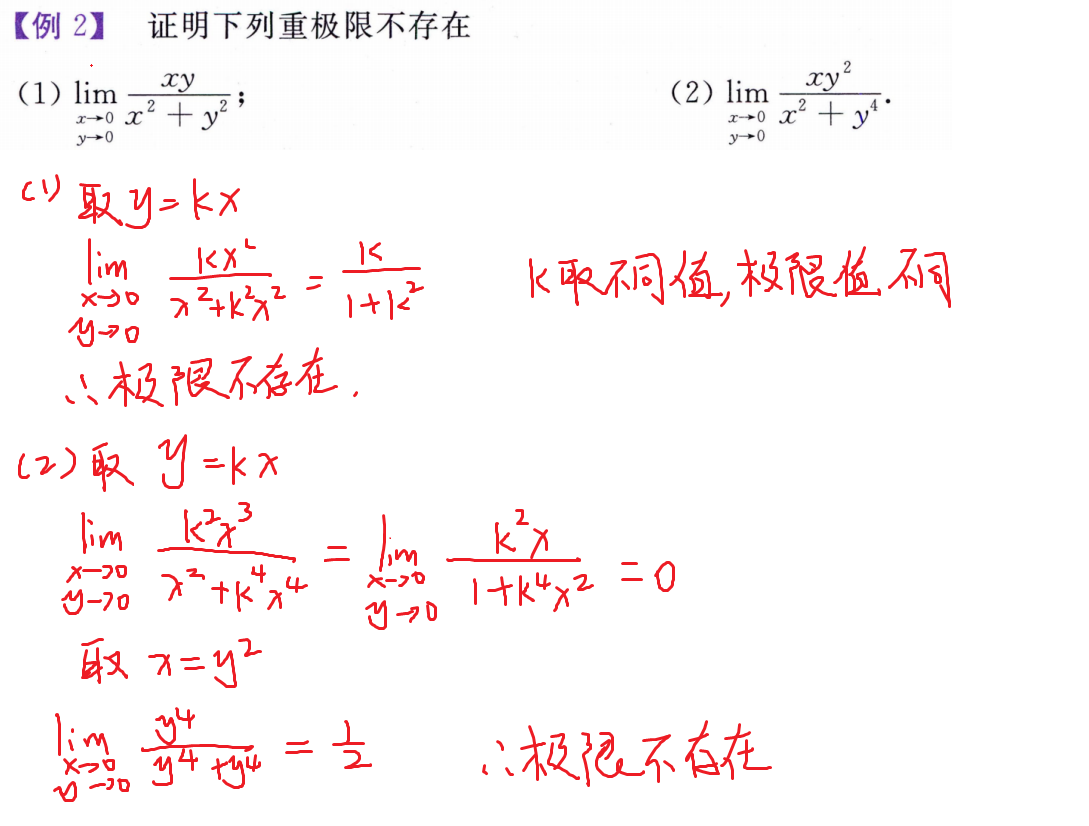 【例 2】 证明下列重极限不存在
(1) lim_{x→0, y→0} xy/(x² + y²); (2) lim_{x→0, y→0} xy²/(x² + y⁴).
(1) 取 y=kx
lim_{x→0, y→0} kx²/(x²+k²x²) = k/(1+k²) k取不同值,极限值不同
∴极限不存在.
(2) 取 y=kx
lim_{x→0, y→0} k²x³/(x²+k⁴x⁴) = lim_{x→0, y→0} k²x/(1+k⁴x²) =0
取 x=y²
lim_{x→0, y→0} y⁴/(y⁴+y⁴) = 1/2 ∴极限不存在